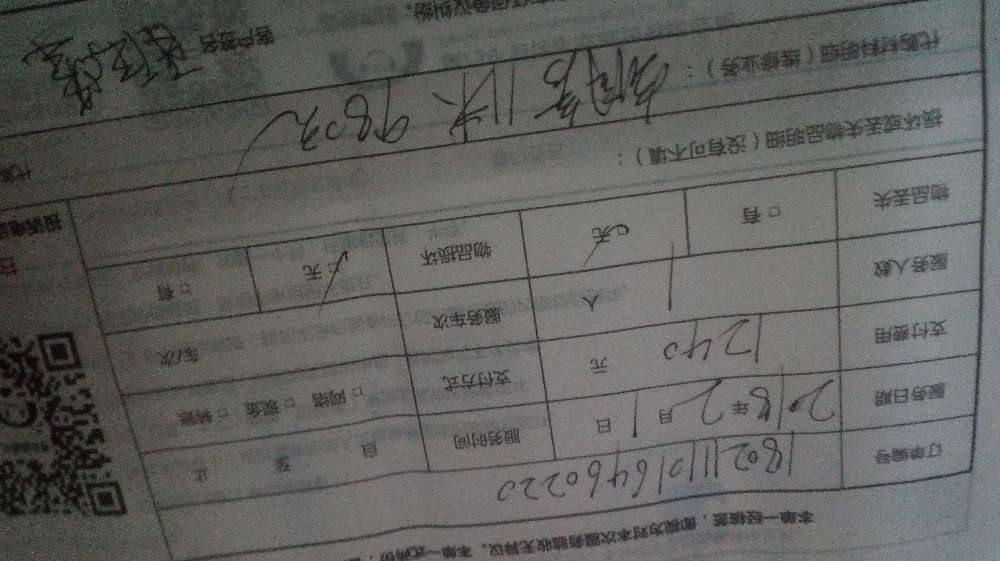 本单一经接签，即视为对本次服务验收无异议。本单一式两份，
订单编号 1802111016460220
服务日期 2018年2月1日 服务时间 自 至 止
支付费用 1240 元 支付方式 □网络 □现金 □转账
服务人数 1 人 服务车次 车/次
物品丢失 □有 □无 物品损坏 □无 □有
损坏或丢失物品明细（没有可不填）：
代购材料明细（维修业务）：
铜管11米 980元
客户签名
任何争议纠纷。
投诉电话